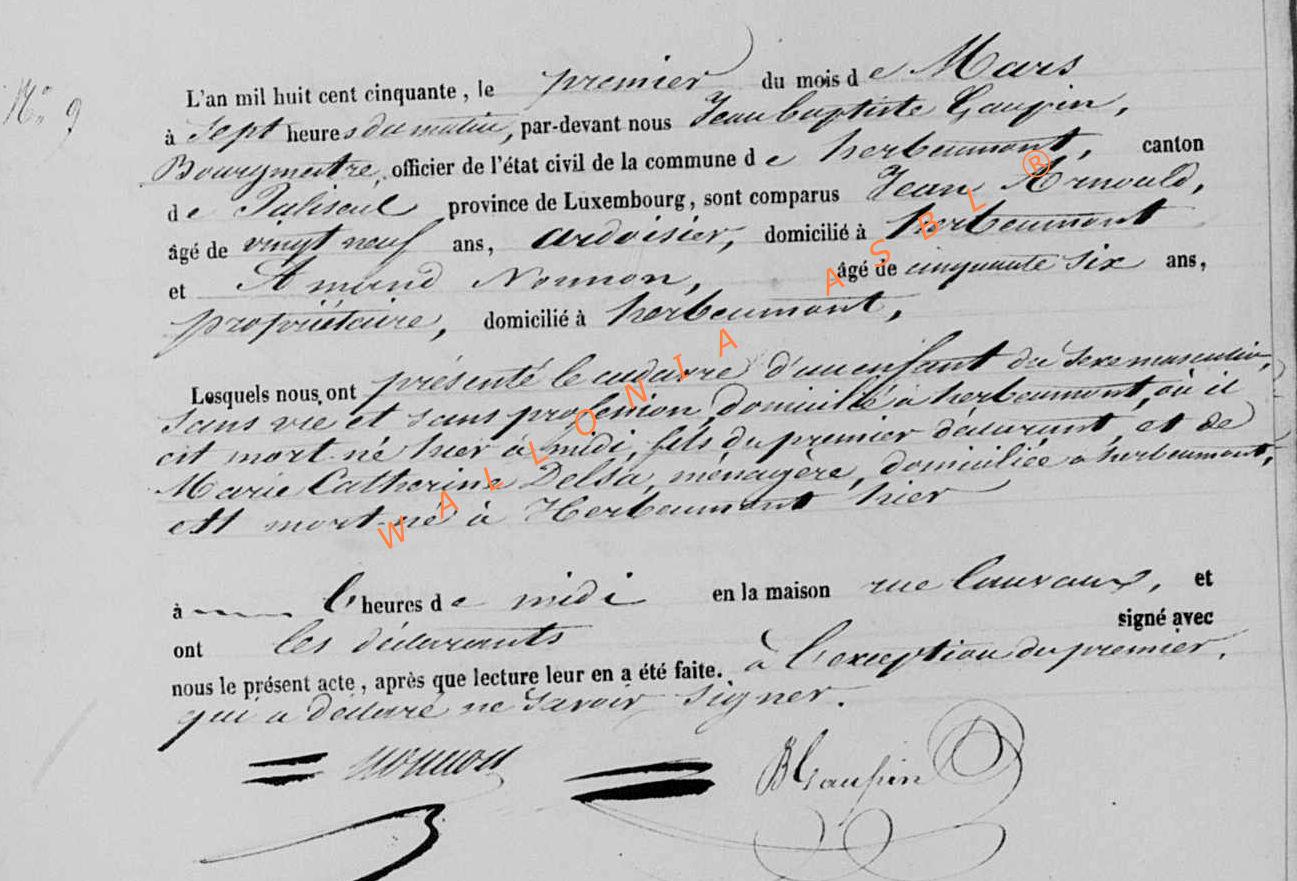 N° 9
L'an mil huit cent cinquante, le premier du mois de Mars
à sept heures du matin, par-devant nous Jean baptiste Gaupin,
Bourgmestre, officier de l'état civil de la commune de herbeumont, canton
de Paliseul province de Luxembourg, sont comparus Jean Arnould,
âgé de vingt neuf ans, ardoisier, domicilié à herbeumont
et Amand Nonnon, âgé de cinquante six ans,
propriétaire, domicilié à herbeumont,
Lesquels nous ont présenté le cadavre d'un enfant du sexe masculin,
sans vie et sans profession, domicilié à herbeumont, où il
est mort-né hier à midi, fils du premier déclarant, et de
Marie Catherine Delsa, ménagère, domiciliée à herbeumont,
est mort-né à Herbeumont hier
à l'heures de midi en la maison rue, et
ont les déclarants signé avec
nous le présent acte, après que lecture leur en a été faite. à l'exception du premier,
qui a déclaré ne savoir signer.
Nonnon JBGaupin
WALLONIA ASBL ®